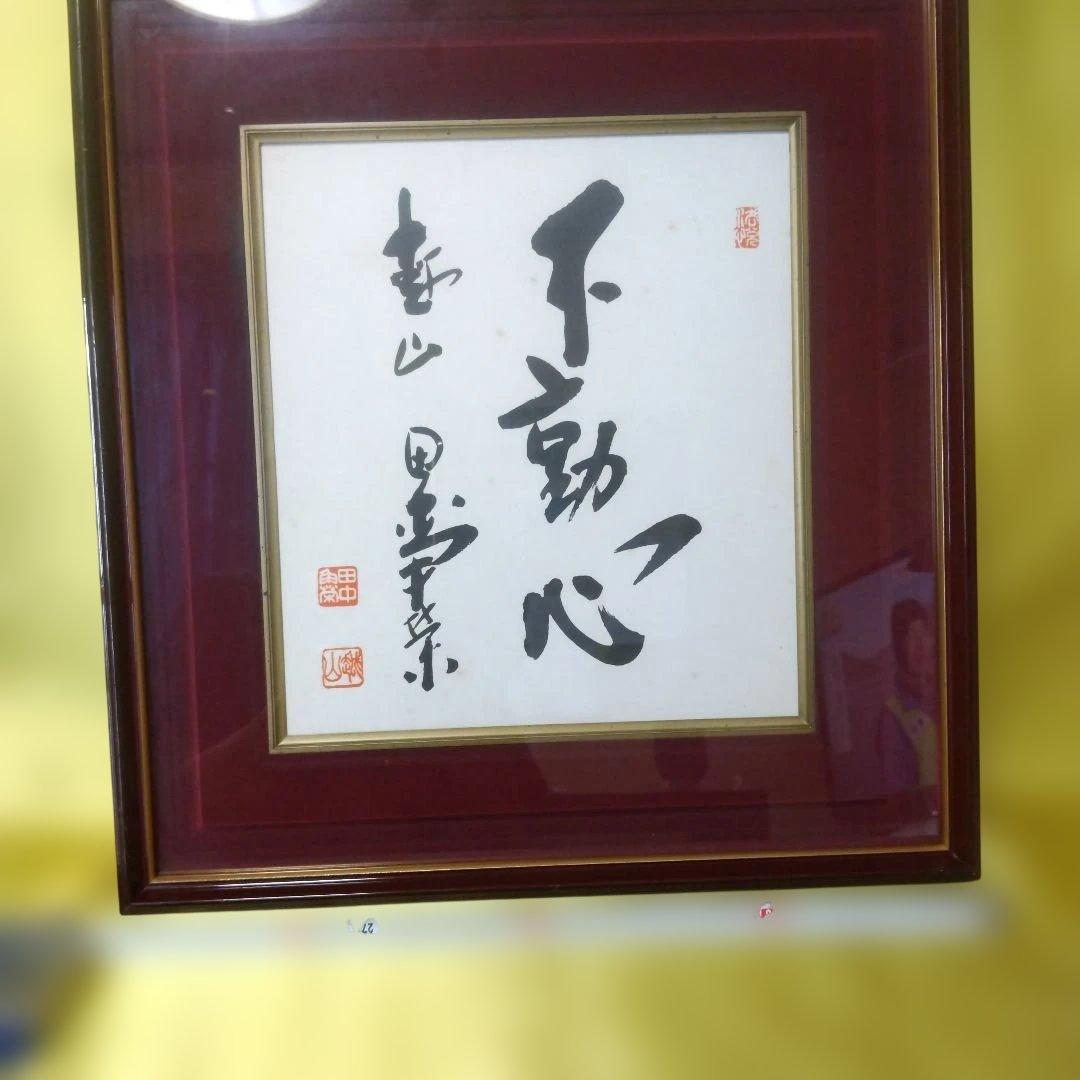 不動心
越山 田中角榮
田中
角榮
越山
27